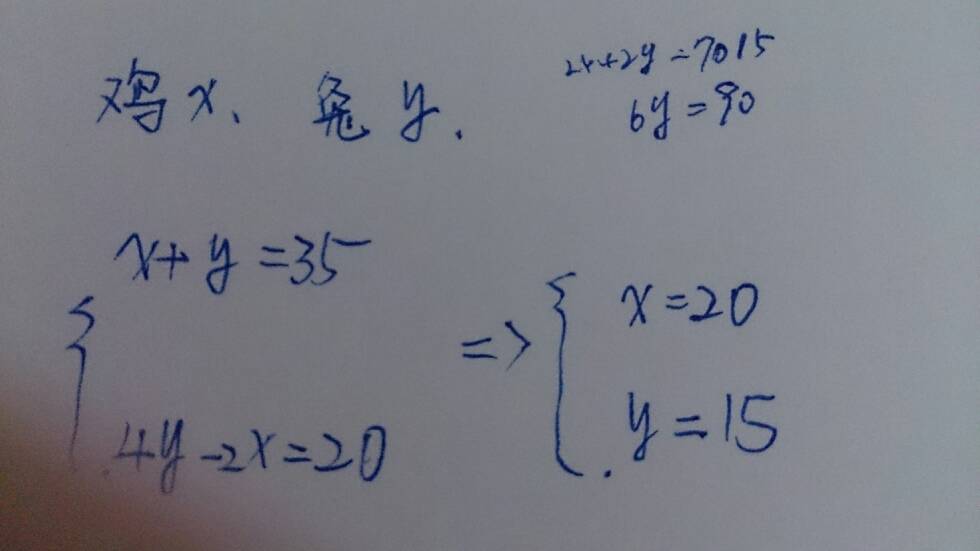 鸡x、龟y.
2x+2y=7015
6y=90
x+y=35
4y-2x=20
=>
x=20
y=15